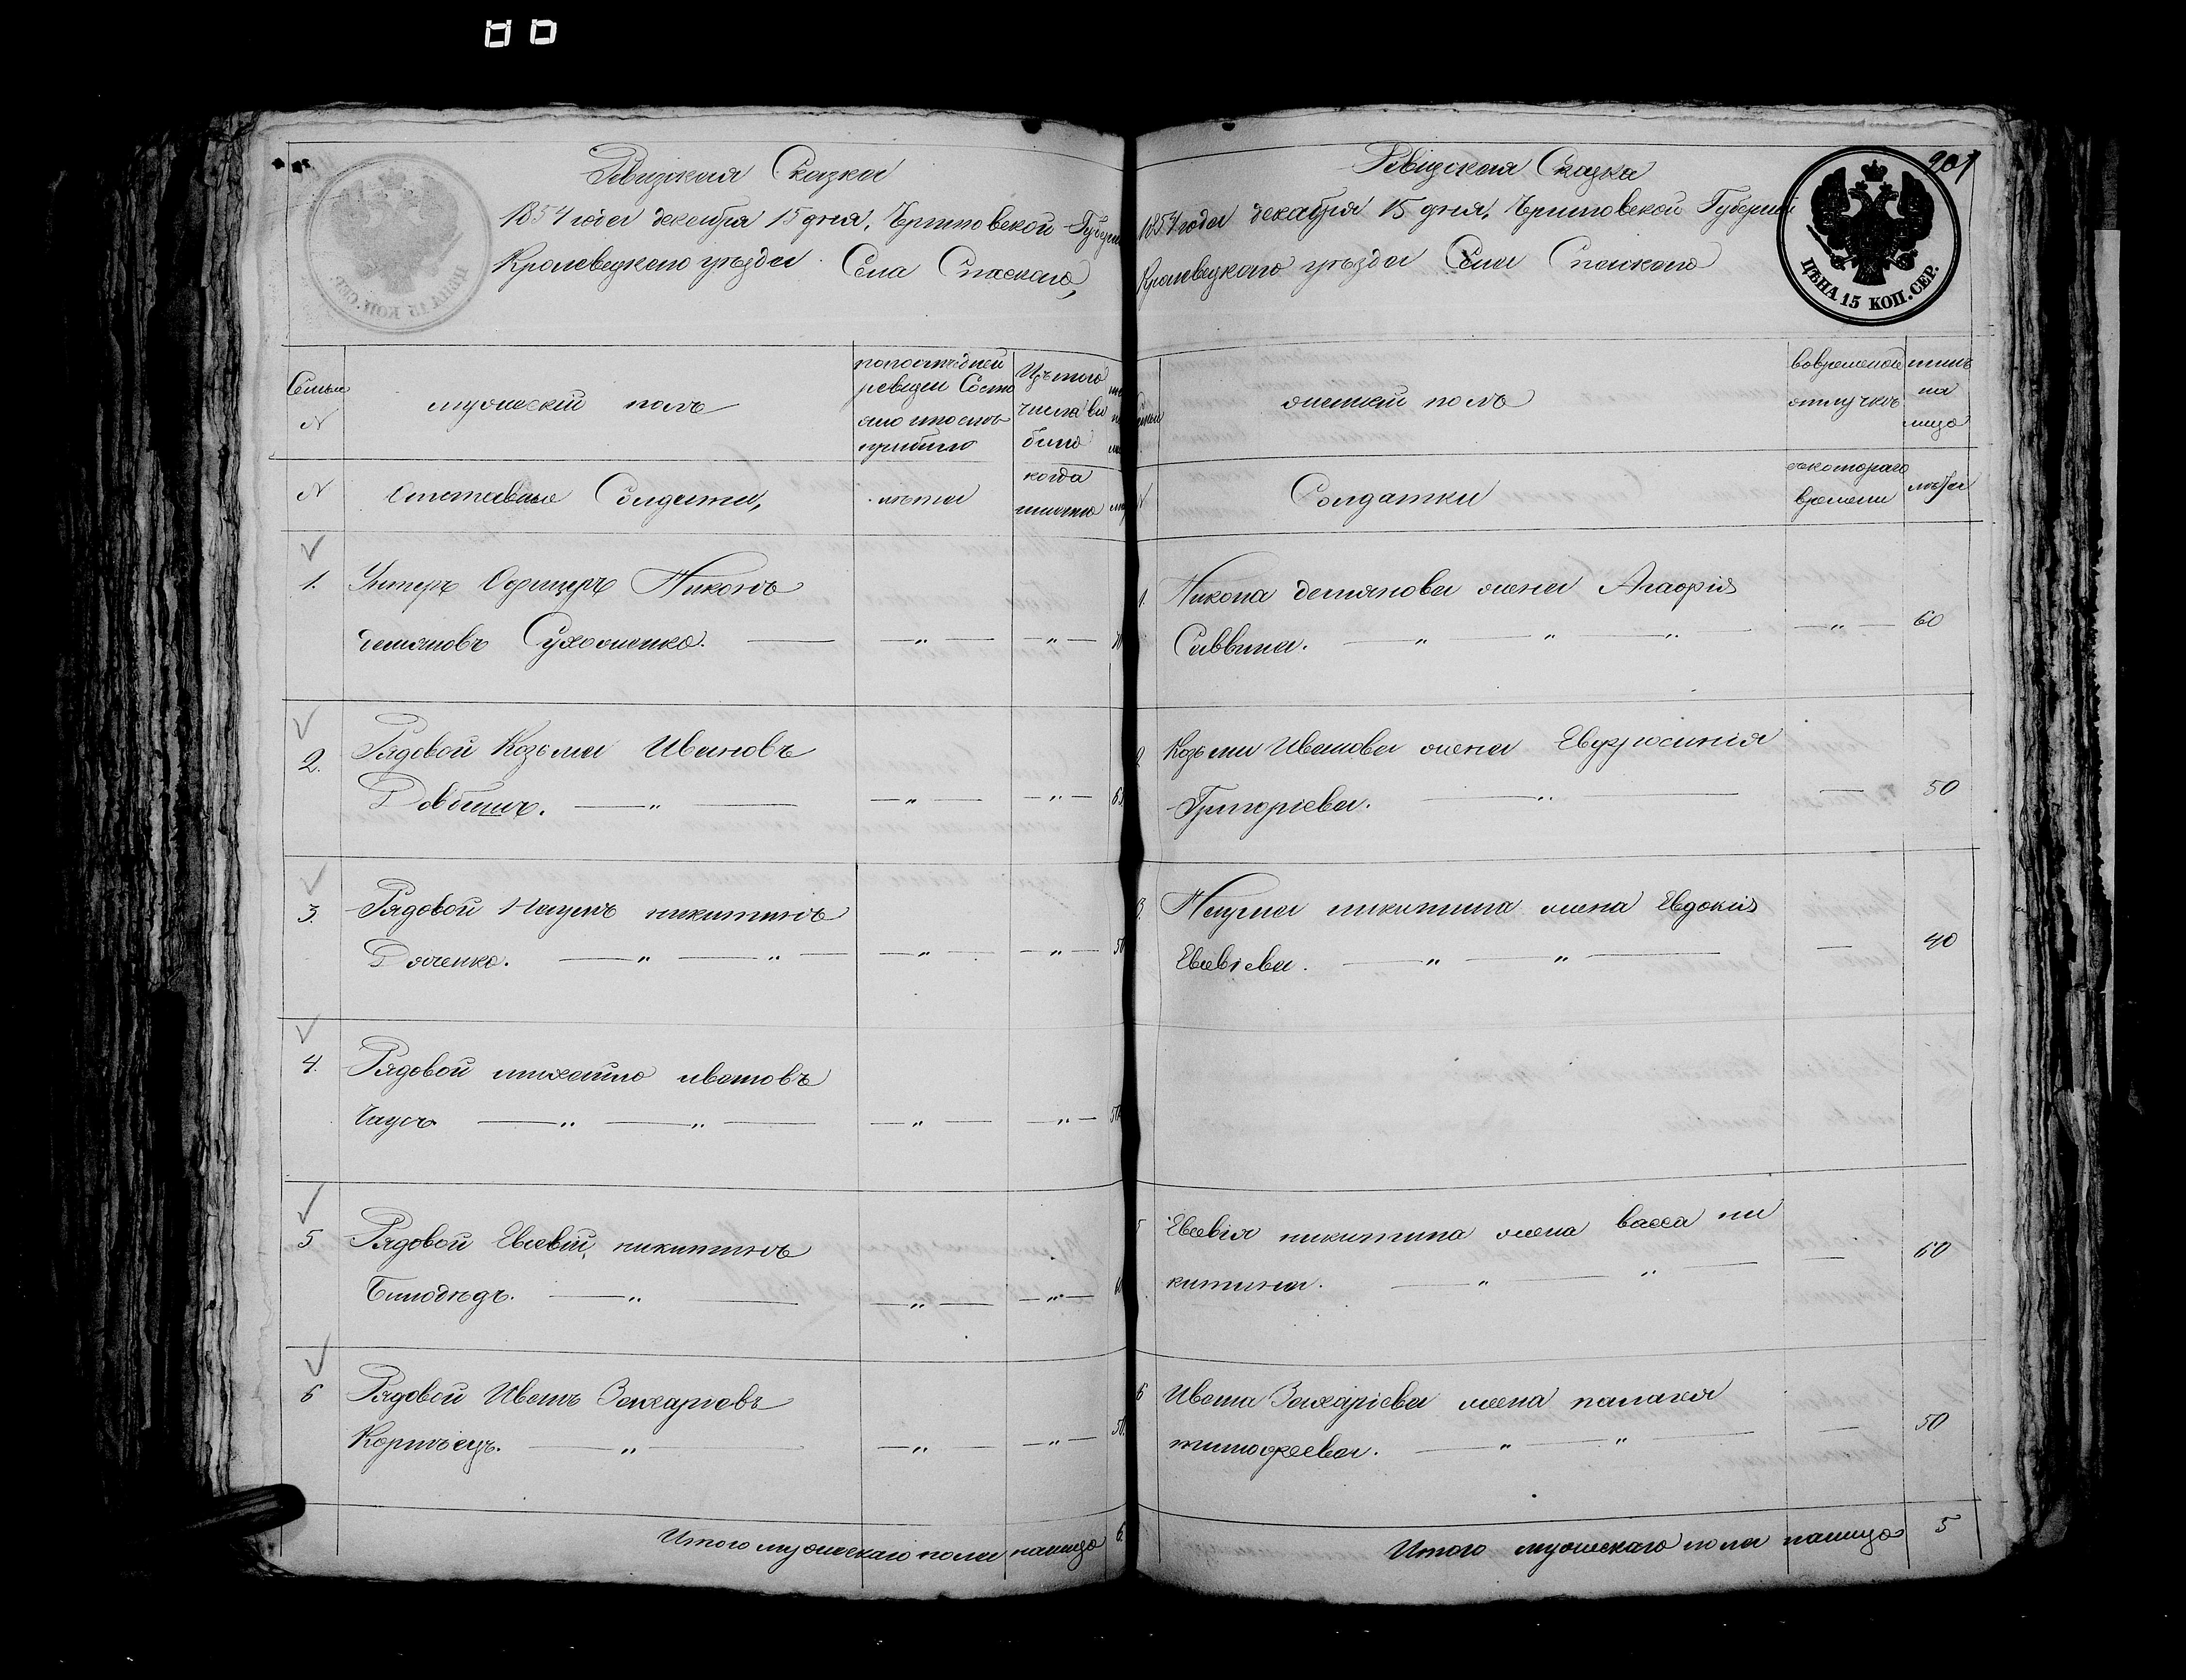 Ревизская Сказка
1854 года декабря 15 дня, Черниговской Губерн
Кролевецкого уѣзда Села Спаского,
Семьи
№
мужеский полъ
по последней
ревизіи Состо
яло и после
прибыло
Изъ того
числа вы
было
№
Отставные Солдаты,
лѣта
когда
именно
1. Унтеръ Офицеръ Никонъ
демяновъ Сухоженко.
2. Рядовой Козьма Ивановъ
Довбишъ.
3. Рядовой Наумъ никитинъ
Доченко.
4. Рядовой михайло ивановъ
Чаусъ
5 Рядовой Евсевій никитинъ
Билодѣдъ.
6 Рядовой Иванъ Захаріевъ
Корпѣецъ.
Итого мужескаго пола налицо 6.
201
Ревизская Сказка
1854 года декабря 15 дня, Черниговской Губерніи
Кролевецкого уѣзда Села Спаского
ЦѢНА 15 КОП. СЕР.
женский полъ
во временной
отлучкѣ
на
лицо
№
Солдатки
съ котораго
времени
лѣта
1. Никона демянова жена Агафія
Саввина. 60
2 Козьмы Иванова жена Евфросинія
Григоріева. 50
3. Наума никитина жена Евдокія
Евсевіева. 40
5 Евсевія никитина жена васса ни
китина. 60
6 Ивана Захаріева жена палагея
тимофеева. 50
Итого мужескаго пола налицо 5